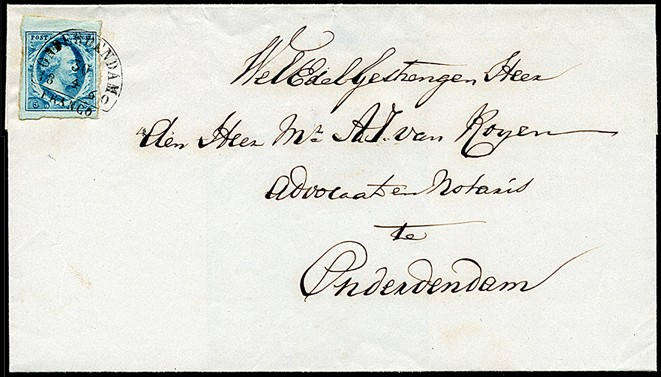 POST
ONDERDENDAM
FRANCO
WelEdelGestrengen Heer
den Heer Mr. A.J. van Royen
Advocaat en Notaris
te
Onderdendam